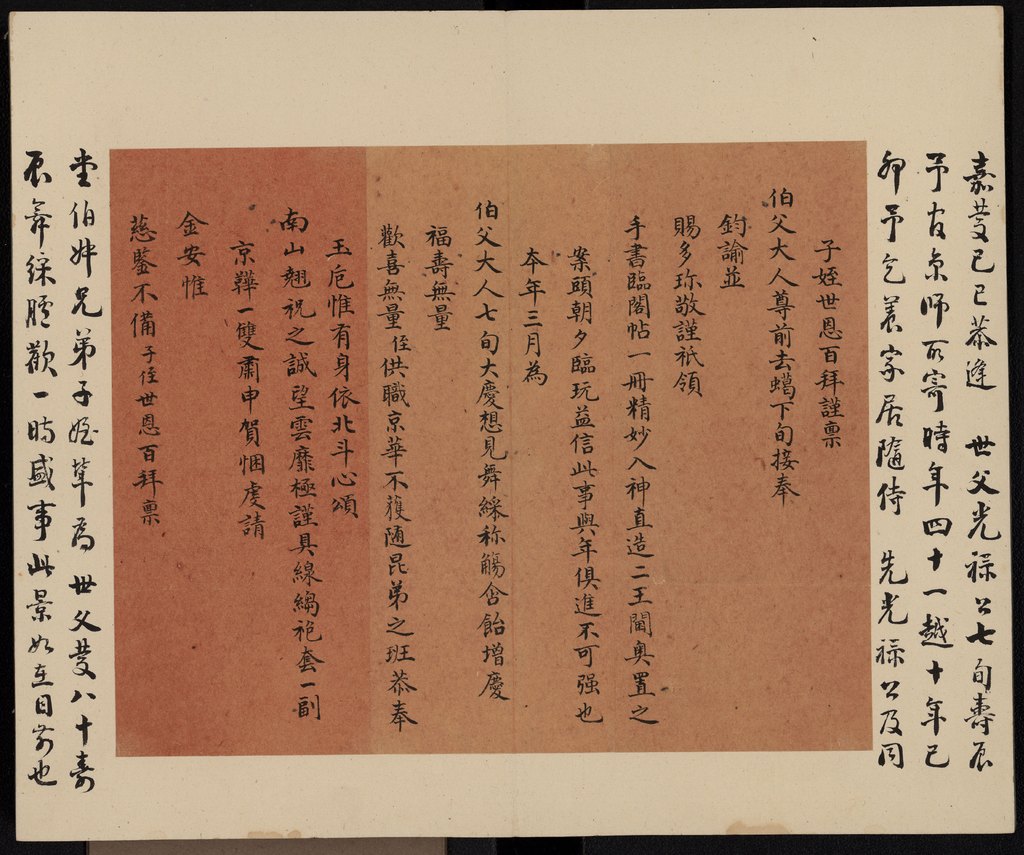 嘉慶己巳恭逢 世父光祿公七旬壽辰
予官京師所寄時年四十一越十年己
卯予乞養家居隨侍 先光祿公及同
子姪世恩百拜謹稟
伯父大人尊前去蠟下旬接奉
鈞諭並
賜多珎敬謹祗領
手書臨閣帖一冊精妙入神直造二王閫奧置之
案頭朝夕臨玩益信此事與年俱進不可强也
本年三月為
伯父大人七旬大慶想見舞綵称觴含飴增慶
福壽無量
歡喜無量侄供職京華不獲随昆弟之班恭奉
玉卮惟有身依北斗心頌
南山翹祝之誠望雲靡極謹具線縐袍套一副
京鞾一雙肅申賀悃虔請
金安惟
慈鑒不備子侄世恩百拜稟
堂伯姊兄弟子姪輩為 世父慶八十壽
辰舞綵臚歡一時盛事此景如在目前也